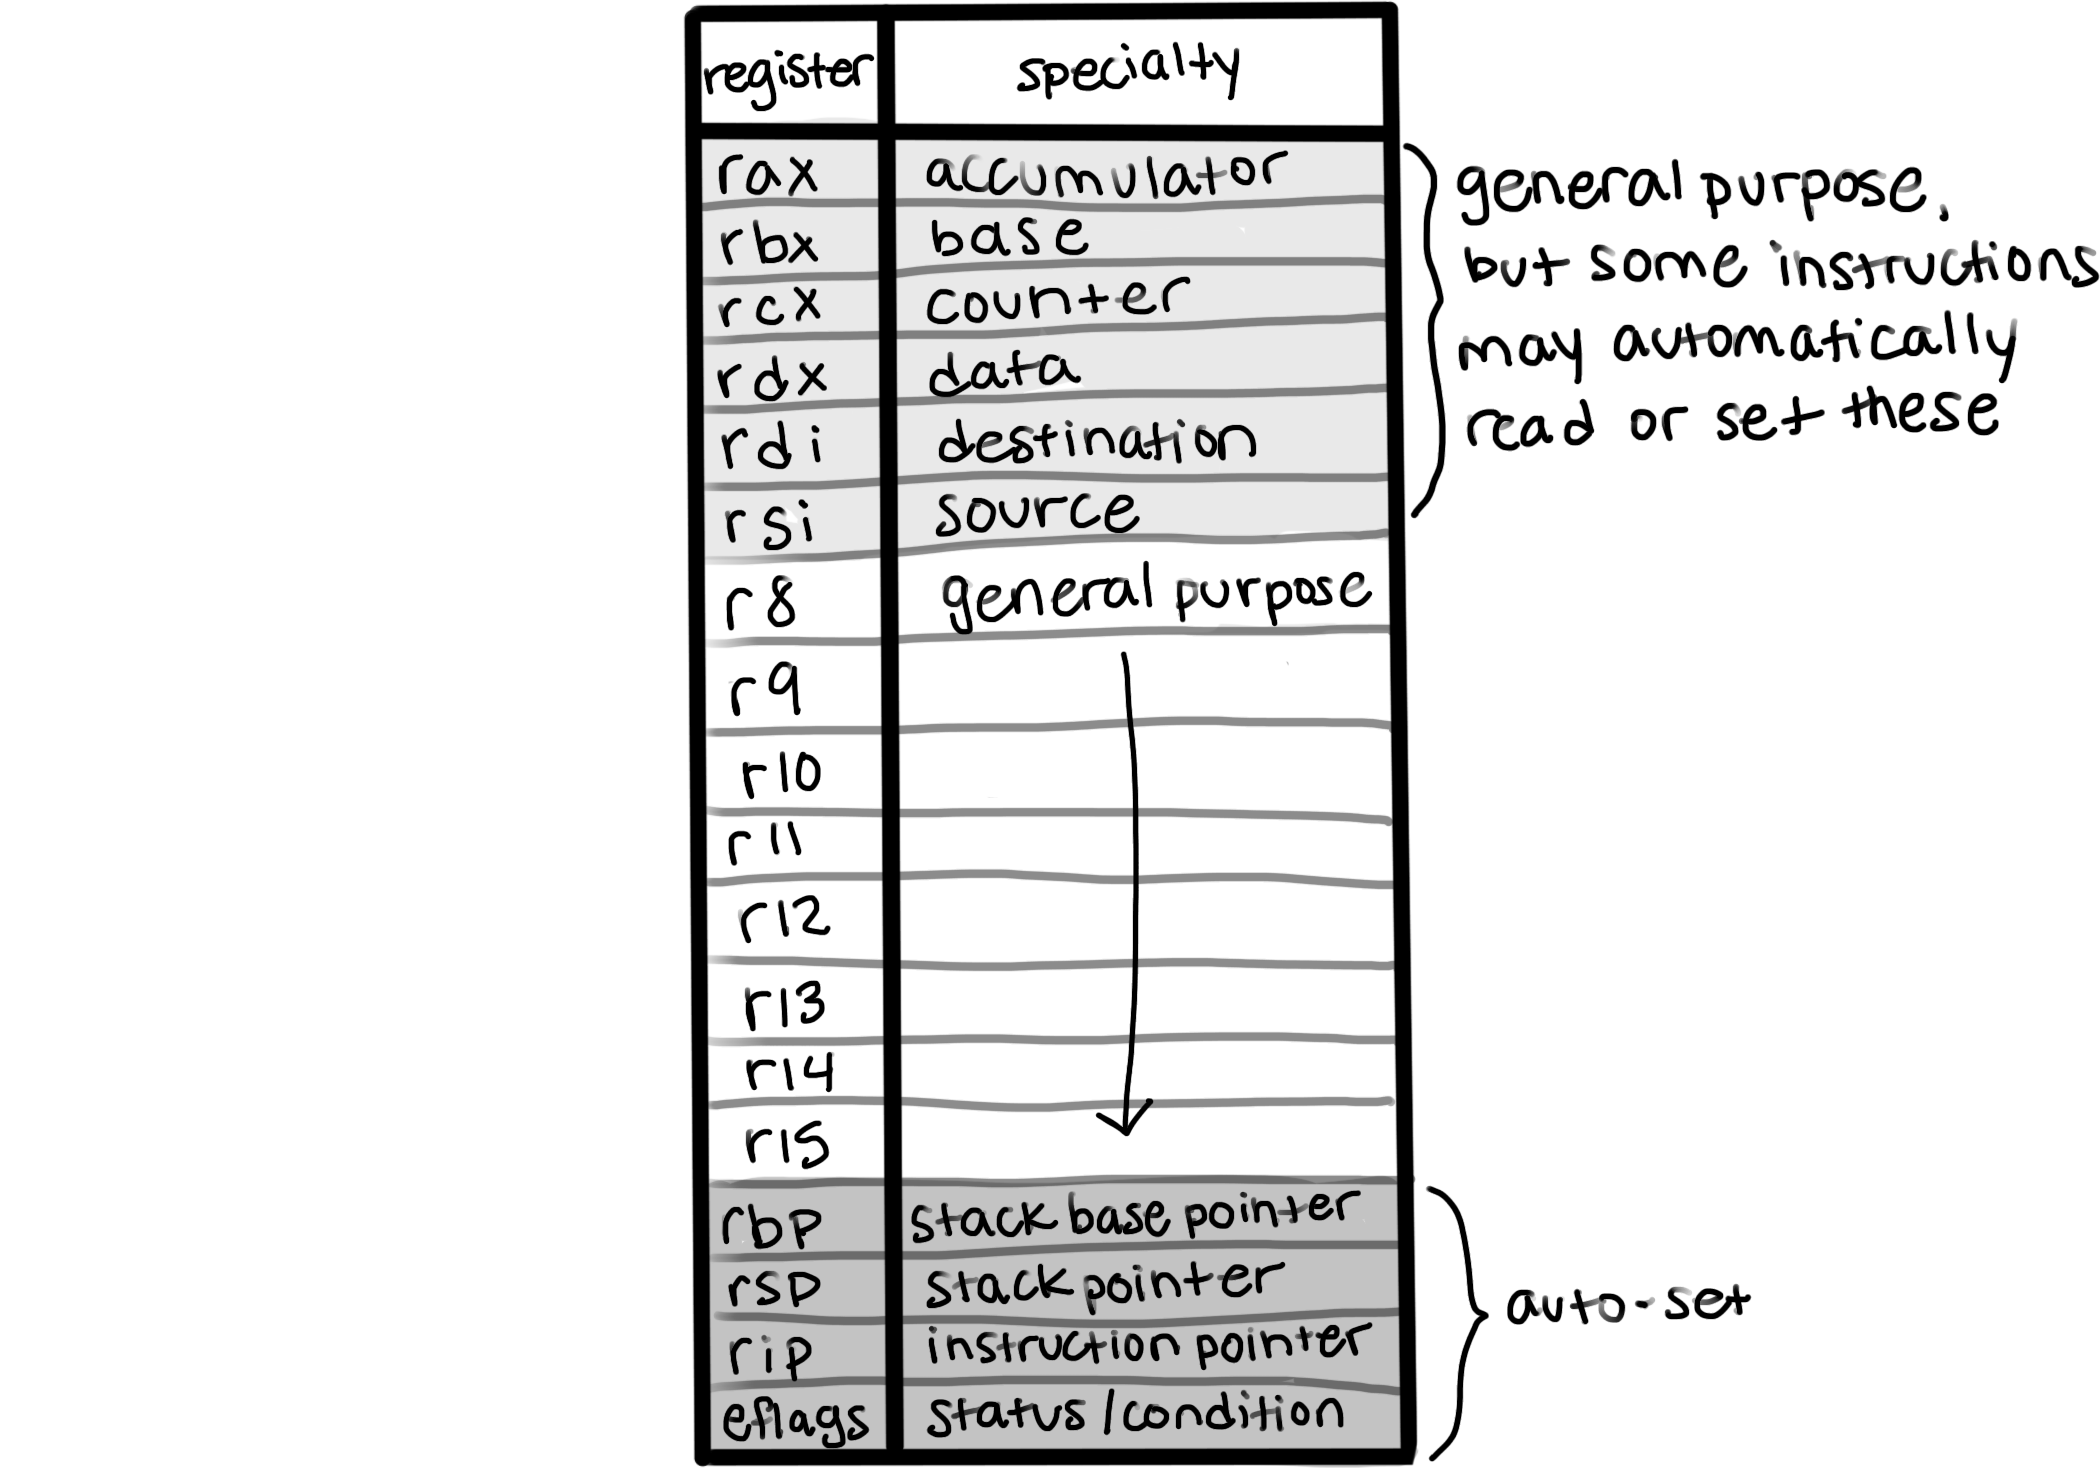 register specialty
rax accumulator
rbx base
rcx counter
rdx data
rdi destination
rsi source
r8 general purpose
r9
r10
r11
r12
r13
r14
r15
rbp stack base pointer
rsp stack pointer
rip instruction pointer
eflags status/condition
general purpose,
but some instructions
may automatically
read or set these
auto-set